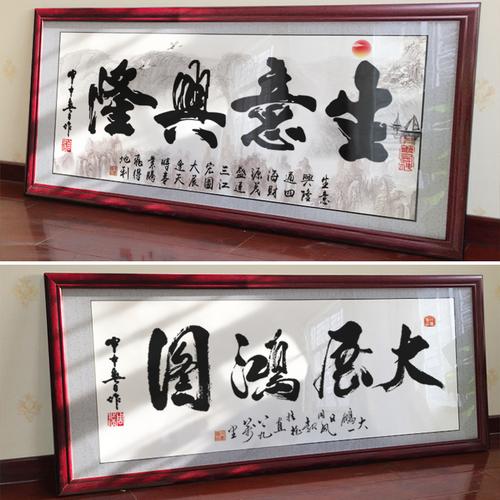 生意興隆
生意
興隆
通四
海財
源茂
盛達
三江
宏圖
大展
逢天
時事
業騰
飛得
地利
甲午春日作
大展鴻圖
大鵬一日同風起扶搖直上九萬里
甲午春日作